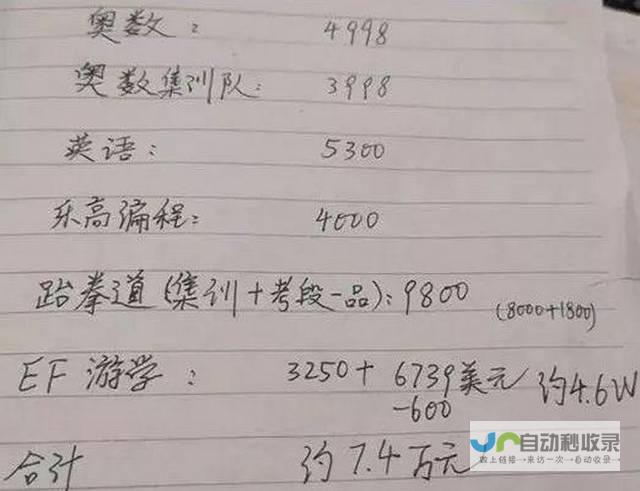 奥数: 4998
奥数集训队: 3998
英语: 5300
乐高编程: 4000
跆拳道(集训+考段一品): 9800 (8000+1800)
EF 游学: 3250+ 6739美元 约4.6W
-600
合计 约7.4万元
自动秒收录
做上链接→来访一次→自动收录